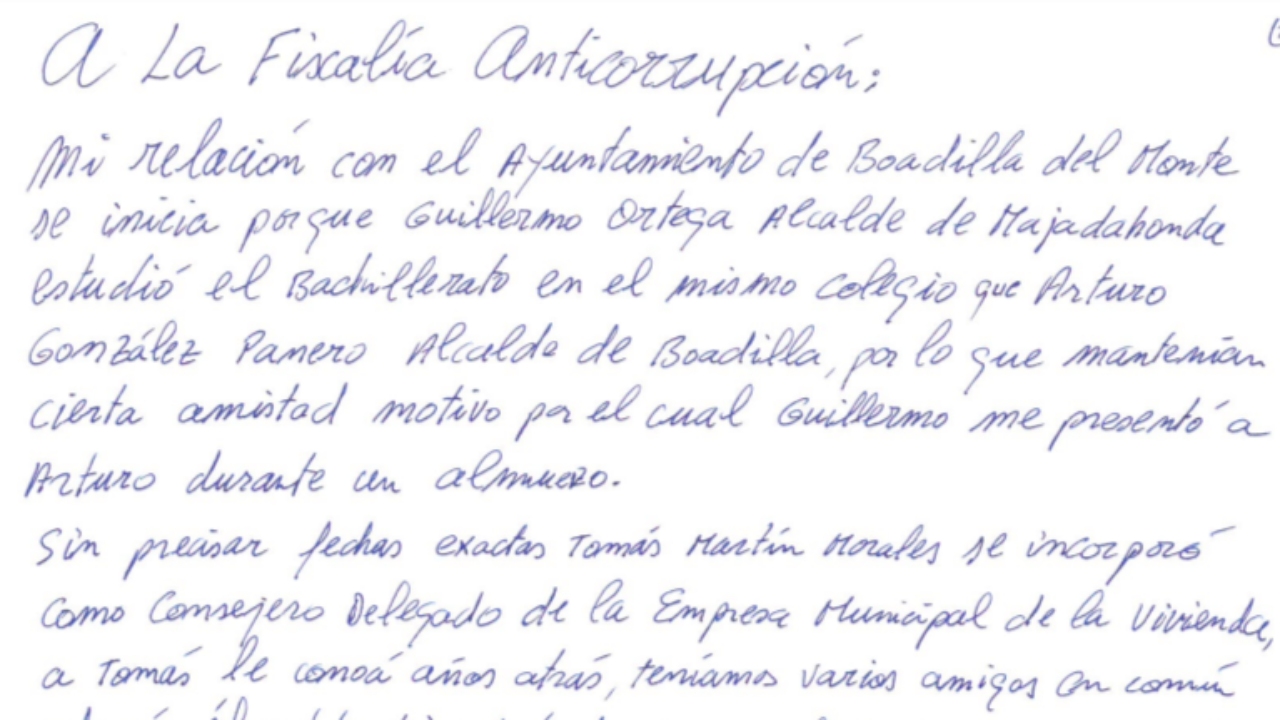 A La Fiscalía Anticorrupción:
Mi relación con el Ayuntamiento de Boadilla del Monte
se inicia porque Guillermo Ortega Alcalde de Majadahonda
estudió el Bachillerato en el mismo colegio que Arturo
González Panero Alcalde de Boadilla, por lo que mantenían
cierta amistad motivo por el cual Guillermo me presentó a
Arturo durante un almuezo.
Sin precisar fechas exactas Tomás Martín Morales se incorporó
como Consejero Delegado de la Empresa Municipal de la Vivienda,
a Tomás le conocí años atrás, teníamos varios amigos en común